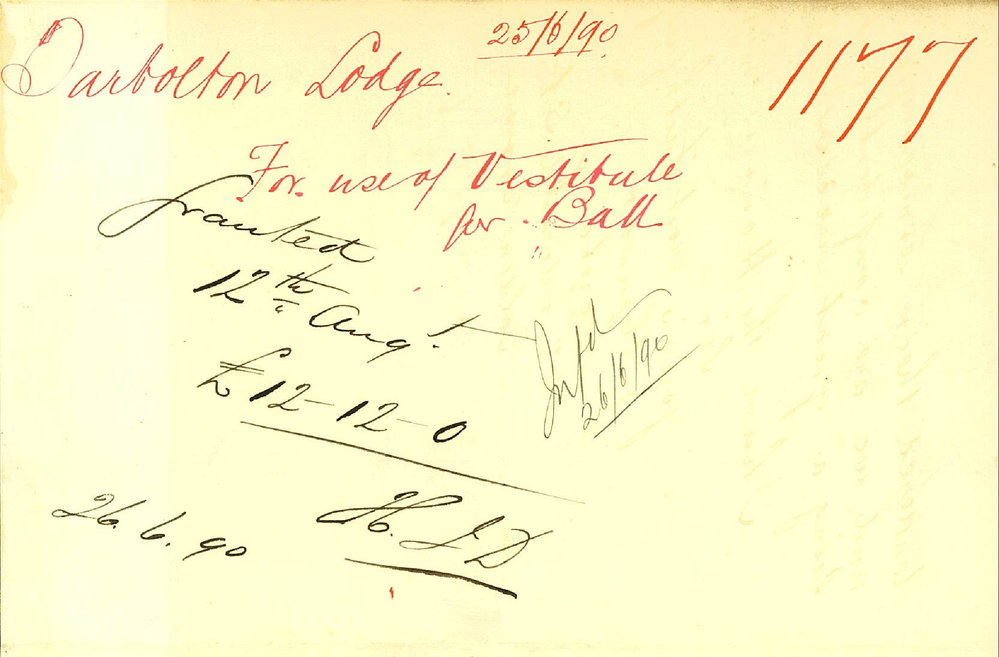 25/6/90
Tarbolton Lodge.
1177
For use of Vestibule
for Ball
Granted
12th Augt.
£12-12-0
Intd
26/6/90
26.6.90
H. J D